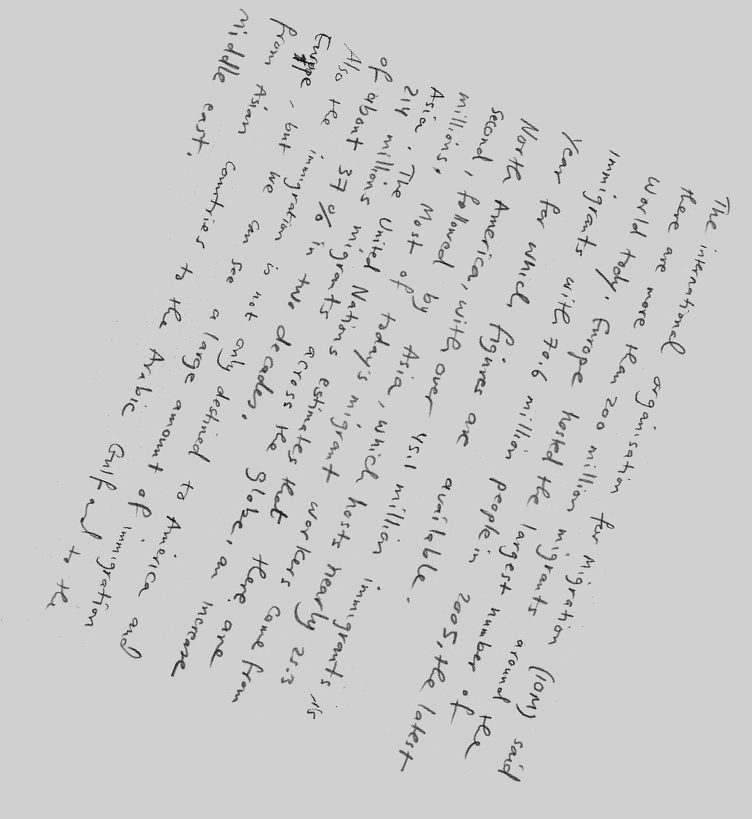 The international organisation for Migration (IOM) said
there are more than 200 million migrants around the
World tody. Europe hosted the largest number of
immigrants with 70.6 million people in 2005, the latest
Year for which figures are available.
North America, with over 45.1 million immigrants is
Second, followed by Asia, which hosts nearly 25.3
millions. Most of today's migrant workers come from
Asia. The United Nations estimates that there are
214 millions migrants across the globe, an increase
of about 37% in two decades.
Also the immigration is not only destined to America and
Europe, but we can see a large amount of immigration
from Asian countries to the Arabic Gulf and to the
Middle east.